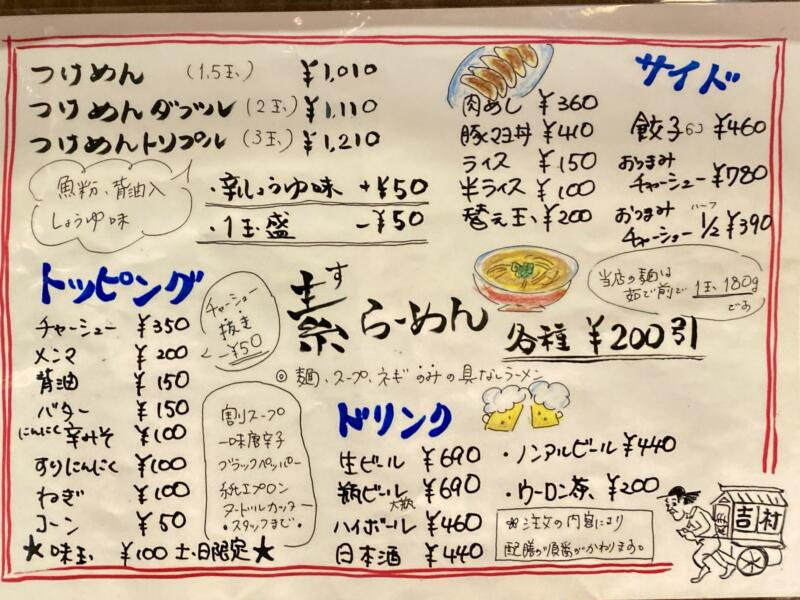 つけめん (1.5玉) ¥1,010
つけめんダブル (2玉) ¥1,110
つけめんトリプル (3玉) ¥1,210
魚粉、背油入
しょうゆ味
・辛しょうゆ味 +¥50
・1玉盛 -¥50
肉めし ¥360
豚マヨ丼 ¥410
ライス ¥150
半ライス ¥100
替え玉 ¥200
サイド
餃子6コ ¥460
おつまみ
チャーシュー ¥780
おつまみ ハーフ
チャーシュー 1/2 ¥390
トッピング
チャーシュー ¥350
メンマ ¥200
背油 ¥150
バター ¥150
にんにく辛みそ ¥100
すりにんにく ¥100
ねぎ ¥100
コーン ¥50
★味玉 ¥100 土、日限定★
チャーシュー
抜き
-¥50
割りスープ
一味唐辛子
ブラックペッパー
紙エプロン
ヌードルカッター
・スタッフまで・
す
素らーめん
各種 ¥200引
◎麺、スープ、ネギのみの具なしラーメン
当店の麺は
茹で前で1玉180g
です
ドリンク
生ビール ¥690
瓶ビール ¥690
大瓶
ハイボール ¥460
日本酒 ¥440
・ノンアルビール ¥440
・ウーロン茶 ¥200
※注文の内容により
配膳の順番がかわります。
吉村